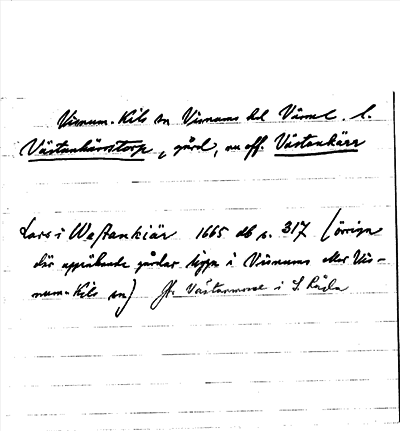 Visnum-Kils sn Visnums hd Värml. l.
Västankärrstorp, gård, nu off. Västankärr
Lars i Wastankiär 1665 db s. 317 (övriga
där uppräknade gårdar ligga i Visnums eller Vis-
num-Kils sn) Jfr Västanmose i S. Råda